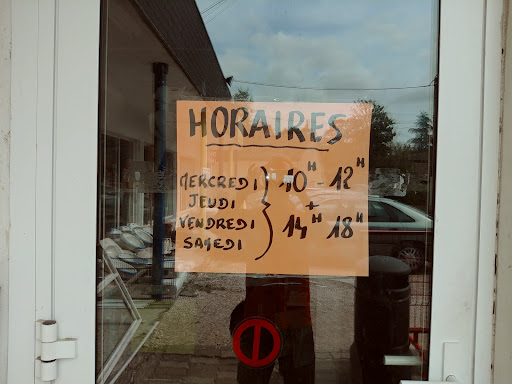 HORAIRES
MERCREDI
JEUDI
VENDREDI
SAMEDI
10H - 12H
+
14H 18H